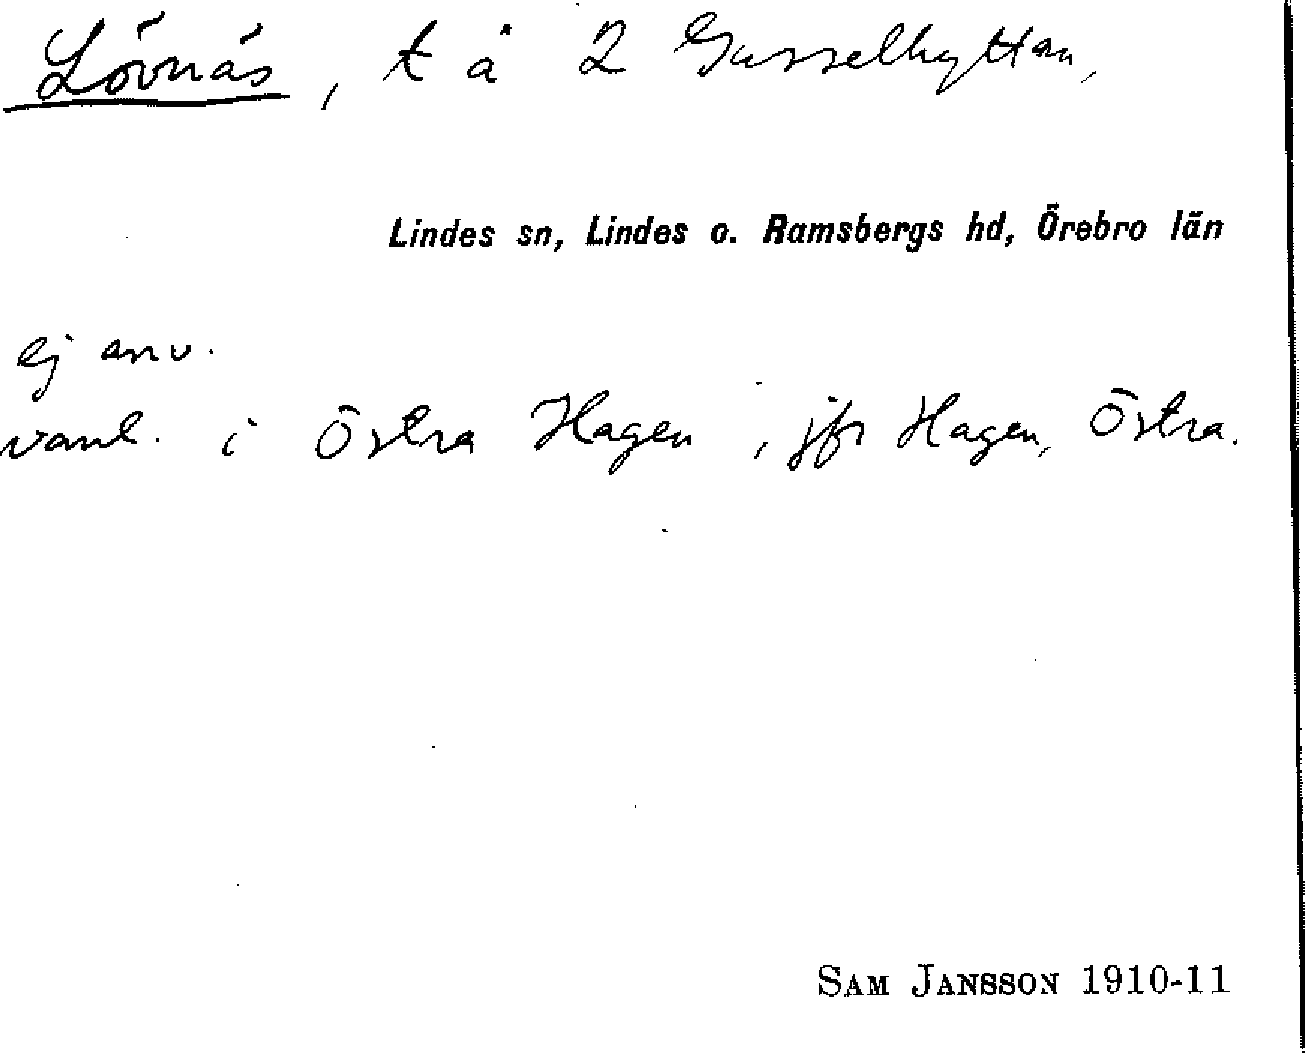 Lövnäs, t å 2 Gusselhyttan,
Lindes sn, Lindes o. Ramsbergs hd, Örebro län
ej anv.
vanl. i Östra Hagen, jfr Hagen, Östra.
SAM JANSSON 1910-11